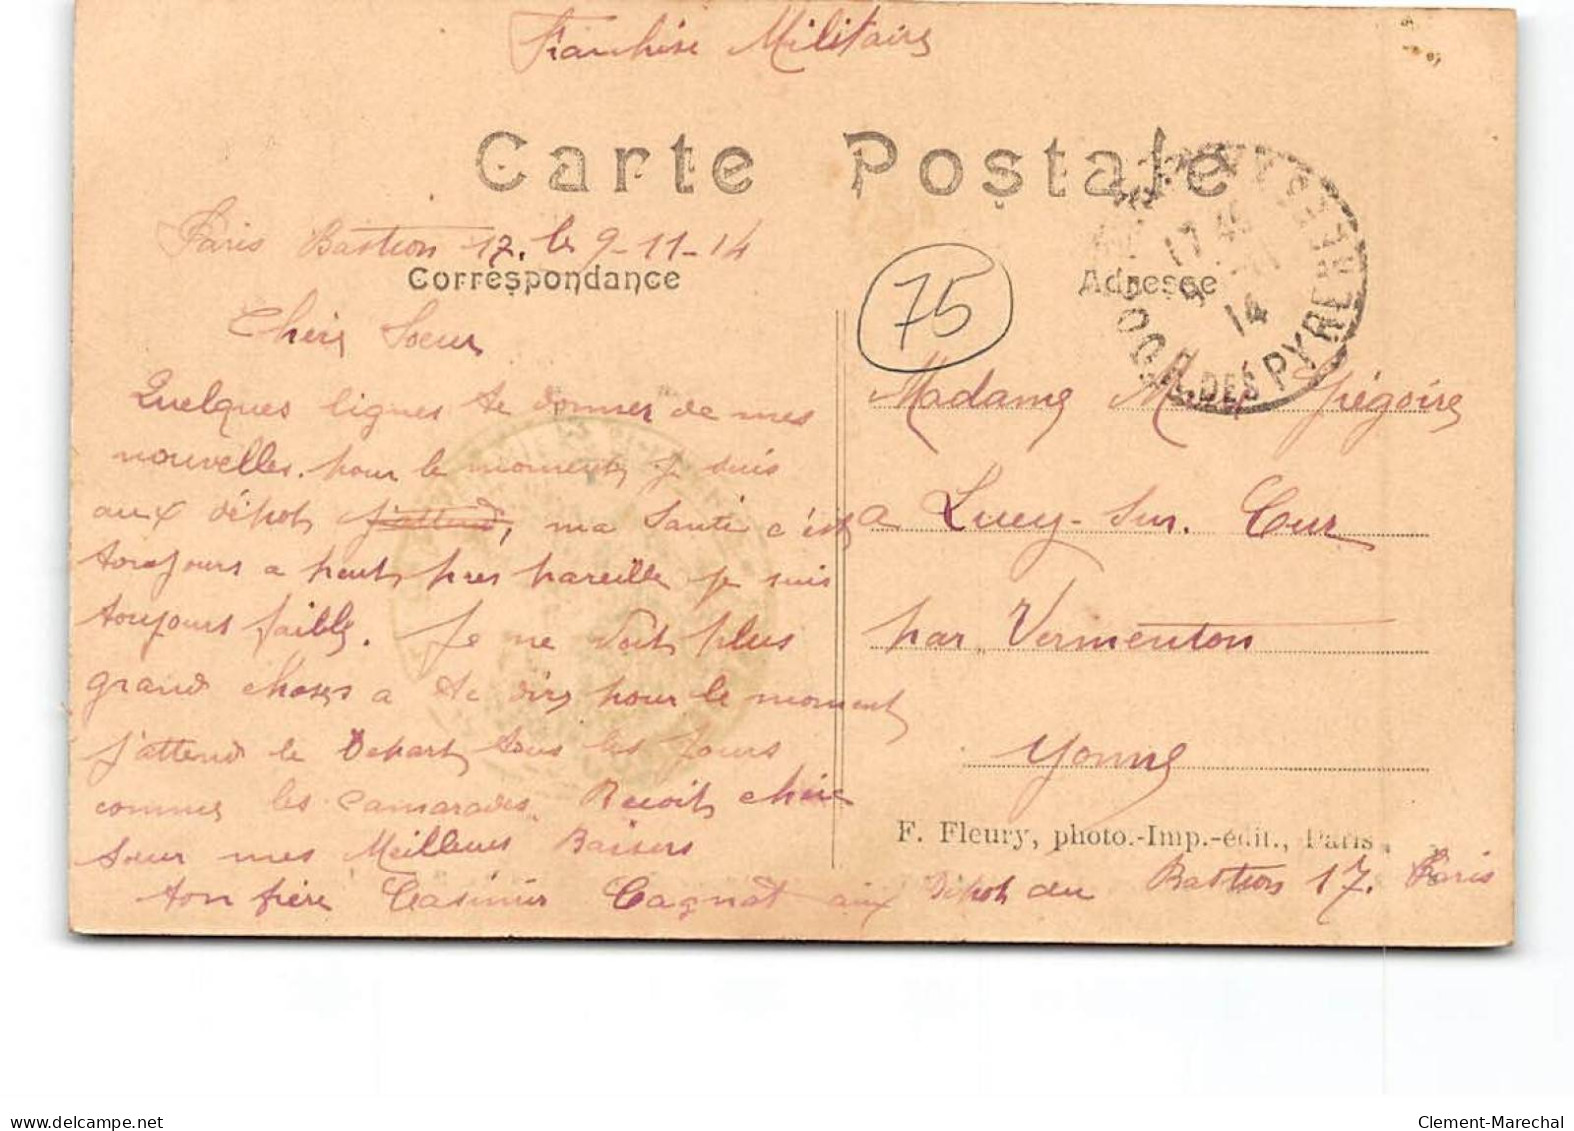 Franchise Militaire
Carte Postale
Paris Bastion 17. le 9-11-14
Correspondance
Chère Soeur
Quelques lignes te donner de mes
nouvelles. pour le moment je suis
aux dépot j'attend, ma santé c'est
toujours a peut près pareille je suis
toujours faible. Je ne voit plus
grand choses a te dire pour le moment
j'attend le Départ tous les jours
comme les camarades. Recoit chère
soeur mes Meilleurs Baisers
ton frère Casimir Cagnat aux Dépot du Bastion 17. Paris
75
Adresse
17 45
9 11
14
DES PYRENEES
Madame Grégoire
a Lucy-Sur. Cur
par Vermenton
Yonne
F. Fleury, photo.-Imp.-édit., Paris
delcampe.net
Clement-Marechal